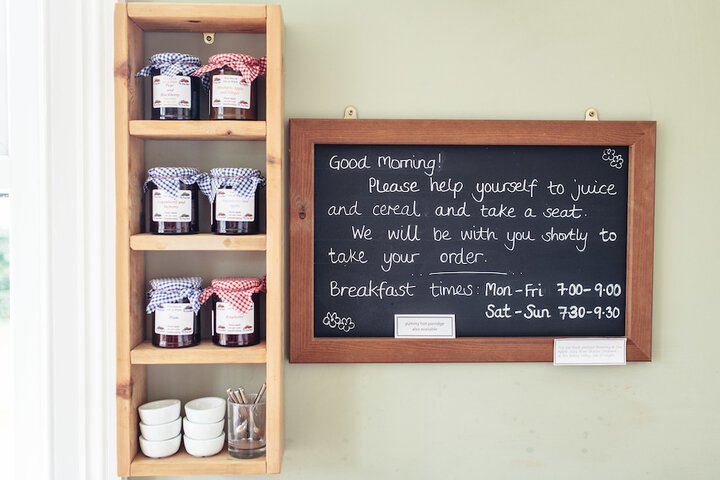 Good Morning!
Please help yourself to juice
and cereal and take a seat.
We will be with you shortly to
take your order.
Breakfast times: Mon-Fri 7:00-9:00
Sat-Sun 7:30-9:30
yummy hot porridge
also available
Plum
Raspberry